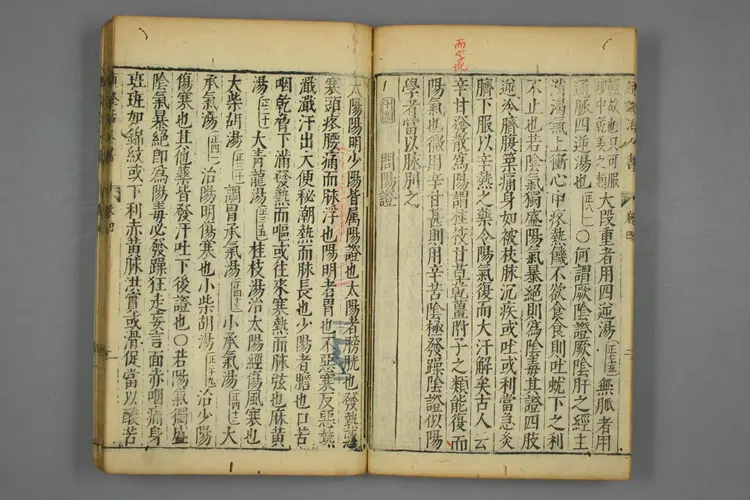 大段重者用四逆湯〔正七五〕無脈者用
通脈四逆湯也〔正八一〕〇何謂厥陰證厥陰肝之經主
消渴氣上衝心中疼熱饑不欲食食則吐蚘下之利
不止也若陰氣獨盛陽氣暴絕則為陰毒其證四肢
逆冷臍腹築痛身如被杖脉沉疾或吐或利當急灸
臍下服以辛熱之藥令陽氣復而大汗解矣古人云
辛甘發散為陽謂桂枝甘草乾薑附子之類能復而
陽氣也微用辛甘甚則用辛苦陰極發躁陰證似陽
學者當以脉別之
問陽證
太陽陽明少陽皆属陽證也太陽者膀胱也發熱惡
寒頭疼腰痛而脉浮也陽明者胃也不惡寒反惡熱
濈濈汗出大便秘潮熱而脉長也少陽者膽也口苦
咽乾脅下滿發熱而嘔或往來寒熱而脉弦也麻黄
湯〔正二十〕大青龍湯〔正三五〕桂枝湯治太陽經傷風寒也
大柴胡湯〔正三十〕調胃承氣湯小承氣湯〔正四十二〕大
承氣湯〔正四一〕治陽明傷寒也小柴胡湯〔正二十九〕治少陽
傷寒也其他藥皆發汗吐下後證也〇若陽氣獨盛
陰氣暴絕即為陽毒必發躁狂走妄言面赤咽痛身
班班如錦紋或下利赤黄脉洪實或滑促當以酸苦